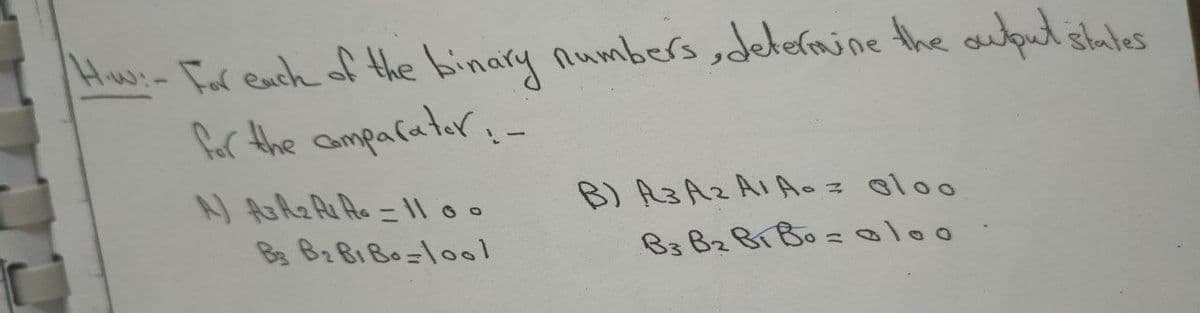 H.w:- For each of the binary numbers, determine the output states
for the comparator :-
A) A3 A2 A1 A0 = 1100
B3 B2 B1 B0 = 1001
B) A3 A2 A1 A0 = 0100
B3 B2 B1 B0 = 0100